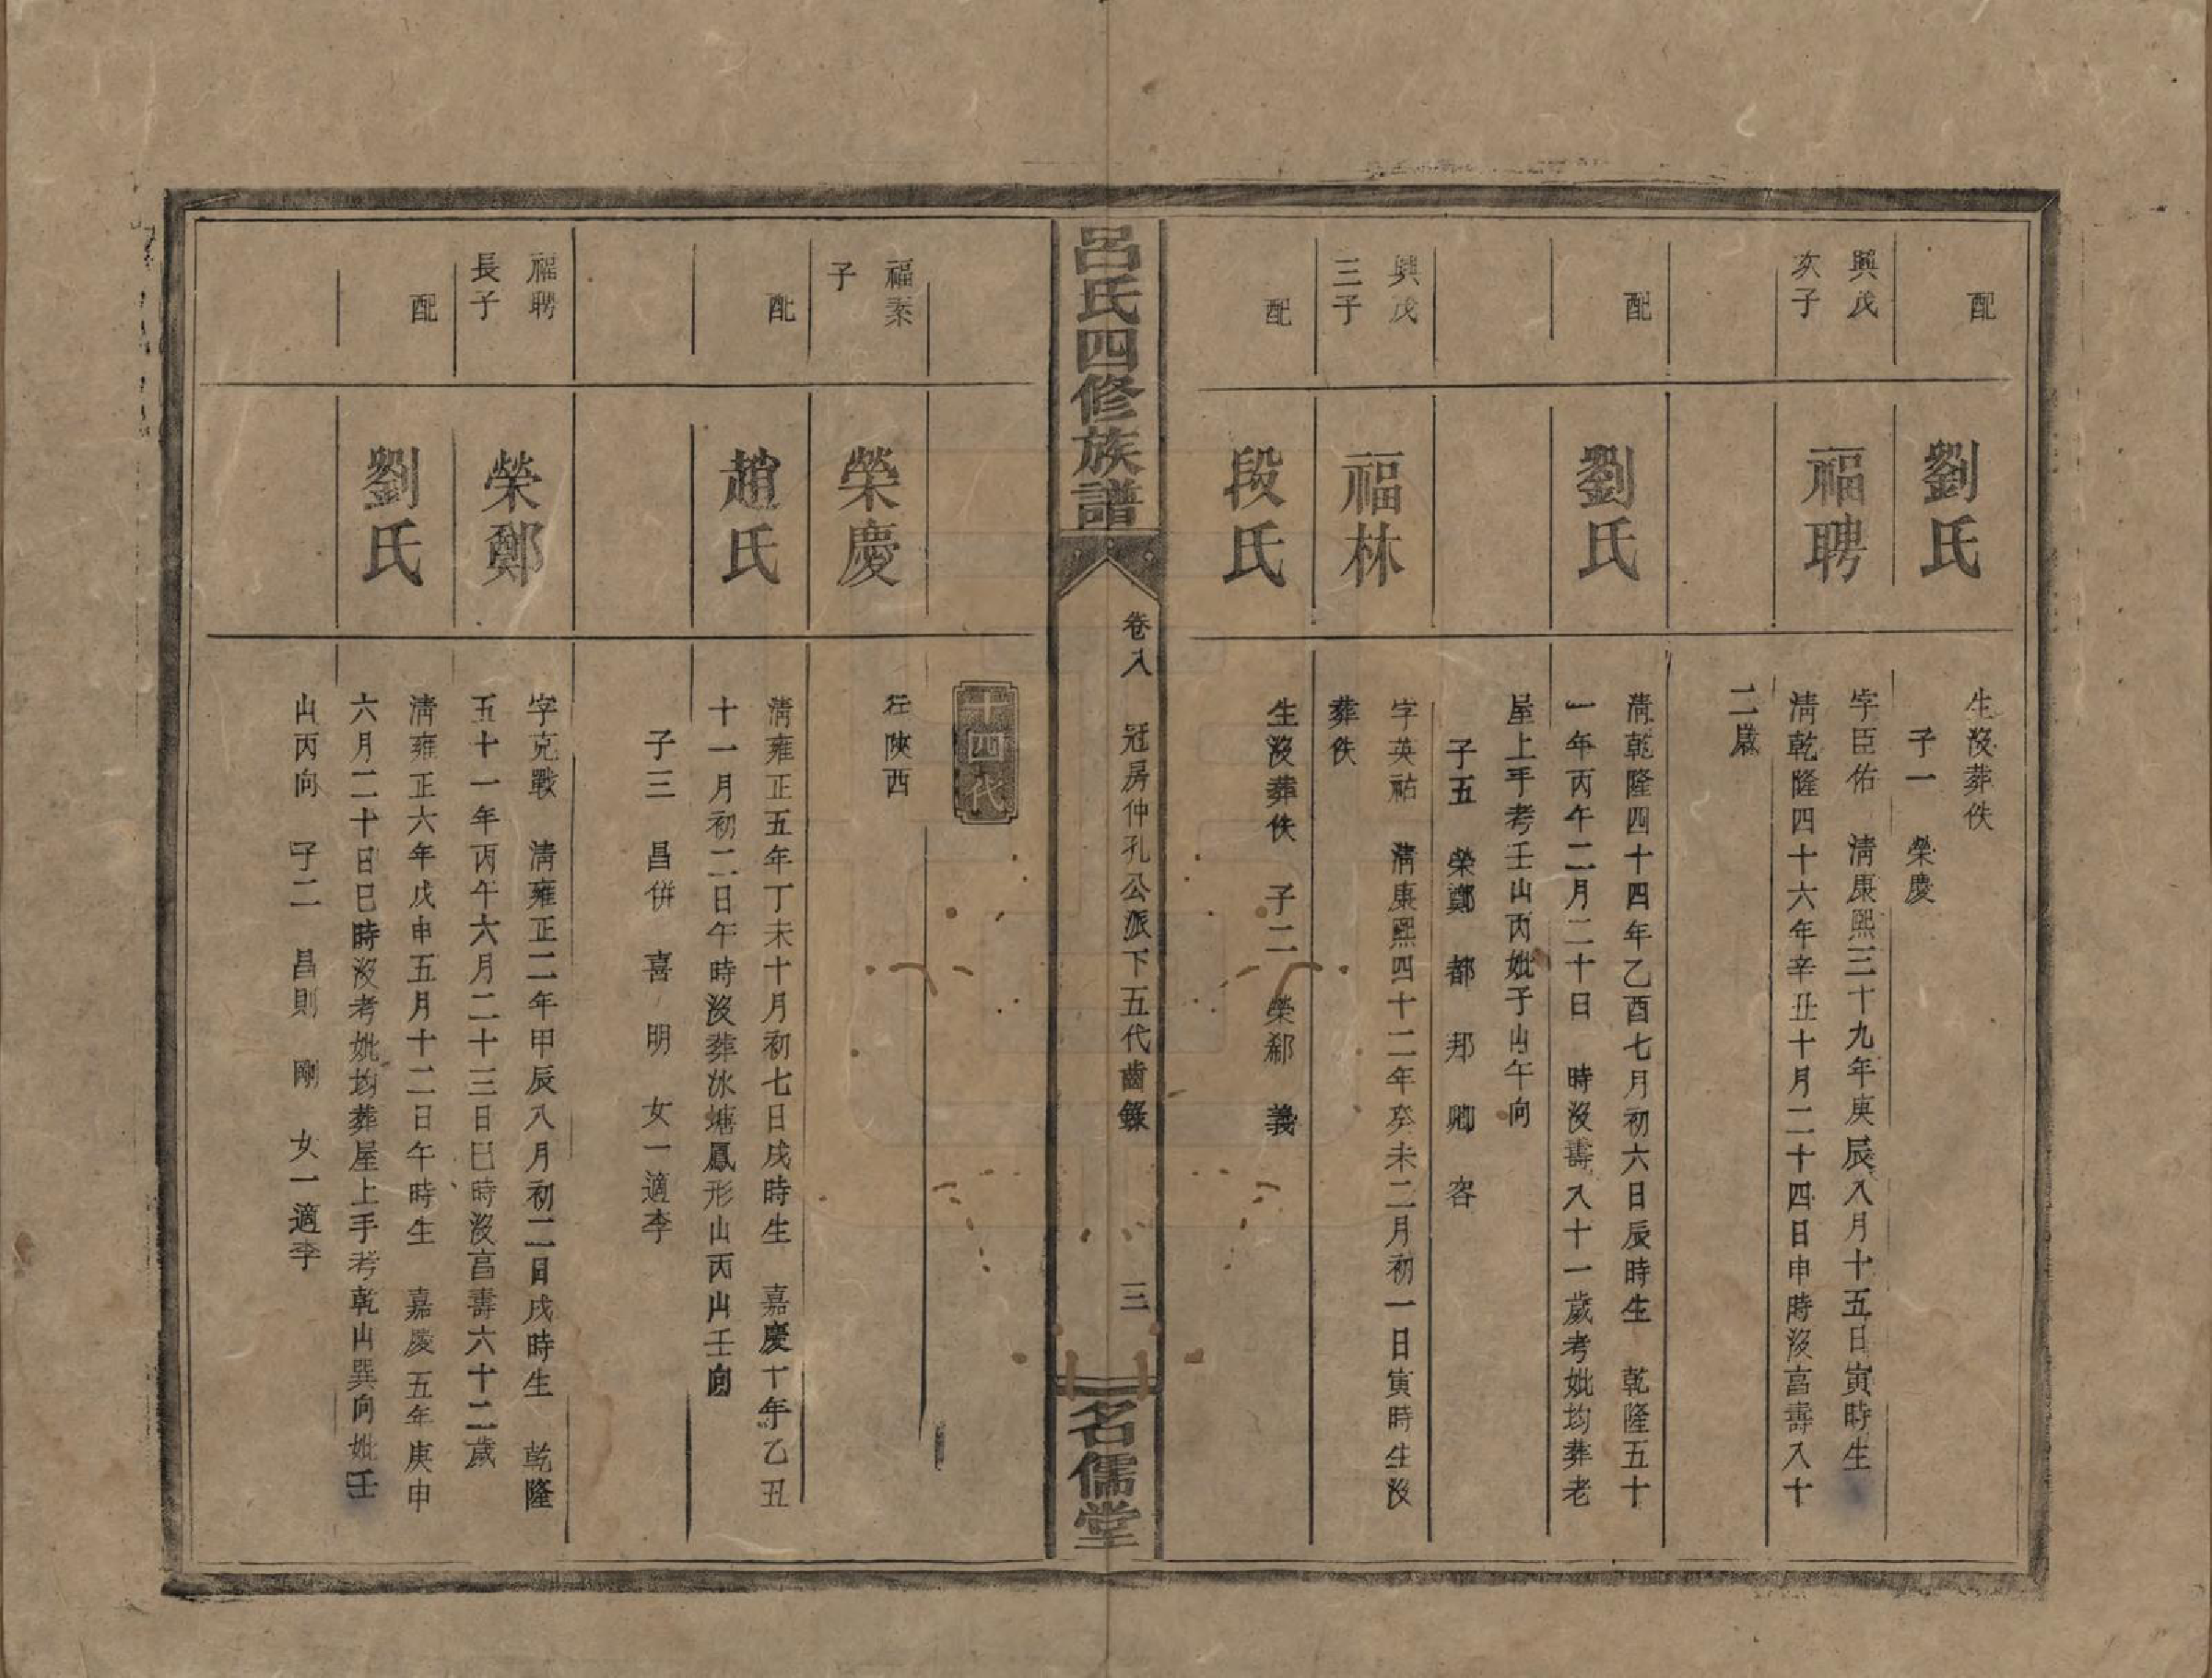 配
劉氏
生沒葬佚
子一　榮慶
興茂
次子
福聘
字臣佑　淸康熙三十九年庚辰八月十五日寅時生
淸乾隆四十六年辛丑十月二十四日申時沒富壽八十
二歲
配
劉氏
淸乾隆四十四年乙酉七月初六日辰時生　乾隆五十
一年丙午二月二十日　時沒壽八十一歲考妣均葬老
屋上手考壬山丙妣子山午向
子五　榮鄭　都　邦　卿　容
興茂
三子
福林
字英祐　淸康熙四十二年癸未二月初一日寅時生沒
葬佚
配
段氏
生沒葬佚　子二　榮郗　義
呂氏四修族譜
卷八　冠房仲孔公派下五代齒錄　三
名儒堂
十四代
福泰
子
榮慶
往陝西
配
趙氏
淸雍正五年丁未十月初七日戌時生　嘉慶十年乙丑
十一月初二日午時沒葬冰塘鳳形山丙山壬向
子三　昌併　喜　明　女一適李
福聘
長子
榮鄭
字克戰　淸雍正二年甲辰八月初二日戌時生　乾隆
五十一年丙午六月二十三日巳時沒富壽六十二歲
配
劉氏
淸雍正六年戊申五月十二日午時生　嘉慶五年庚申
六月二十日巳時沒考妣均葬屋上手考乾山巽向妣壬
山丙向　子二　昌則　剛　女一適李